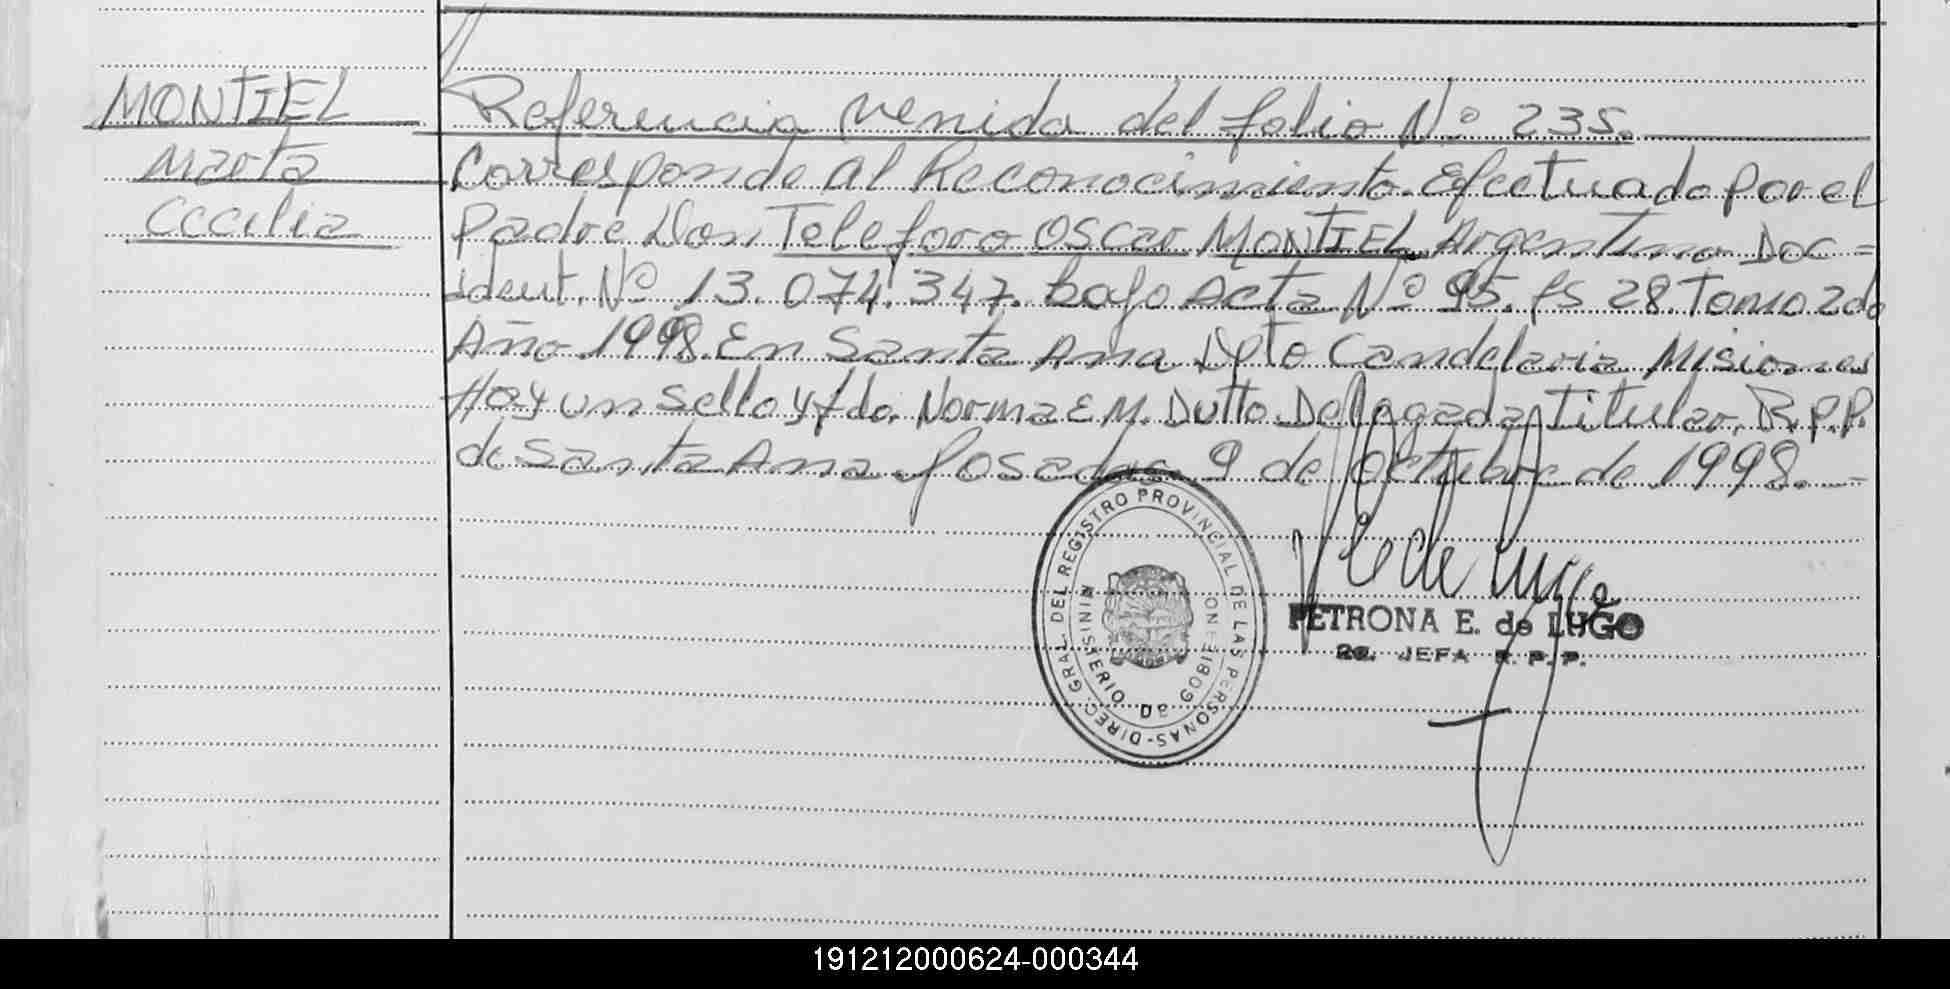 MONTIEL
Marta
Cecilia
Referencia venida del folio Nº 235.
Corresponde al Reconocimiento Efectuado por el
padre Don Teleforo Oscar MONTIEL Argentino Doc=
ident. Nº 13.074.347. bajo Acta Nº 95. fs 28. Tomo 2do
Año 1998. En Santa Ana Dpto Candelaria Misiones
Hay un sello y fdo. Norma E M. Dutto. Delegada Titular. R.P.P.
de Santa Ana. Posadas, 9 de octubre de 1998.-
DIREC. GRAL. DEL REGISTRO PROVINCIAL DE LAS PERSONAS-
MINISTERIO DE GOBIERNO
PETRONA E. de LUGO
2a. JEFA R.P.P.
191212000624-000344